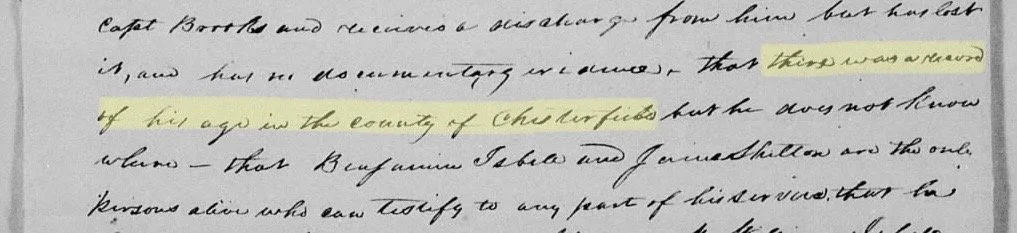 Capt Brooks and received a discharge from him but has lost
it, and has no documentary evidence, that there was a record
of his age in the county of Chesterfield but he does not know
where – that Benjamin Isbele and James Shelton are the only
persons alive who can testify to any part of his service, that he